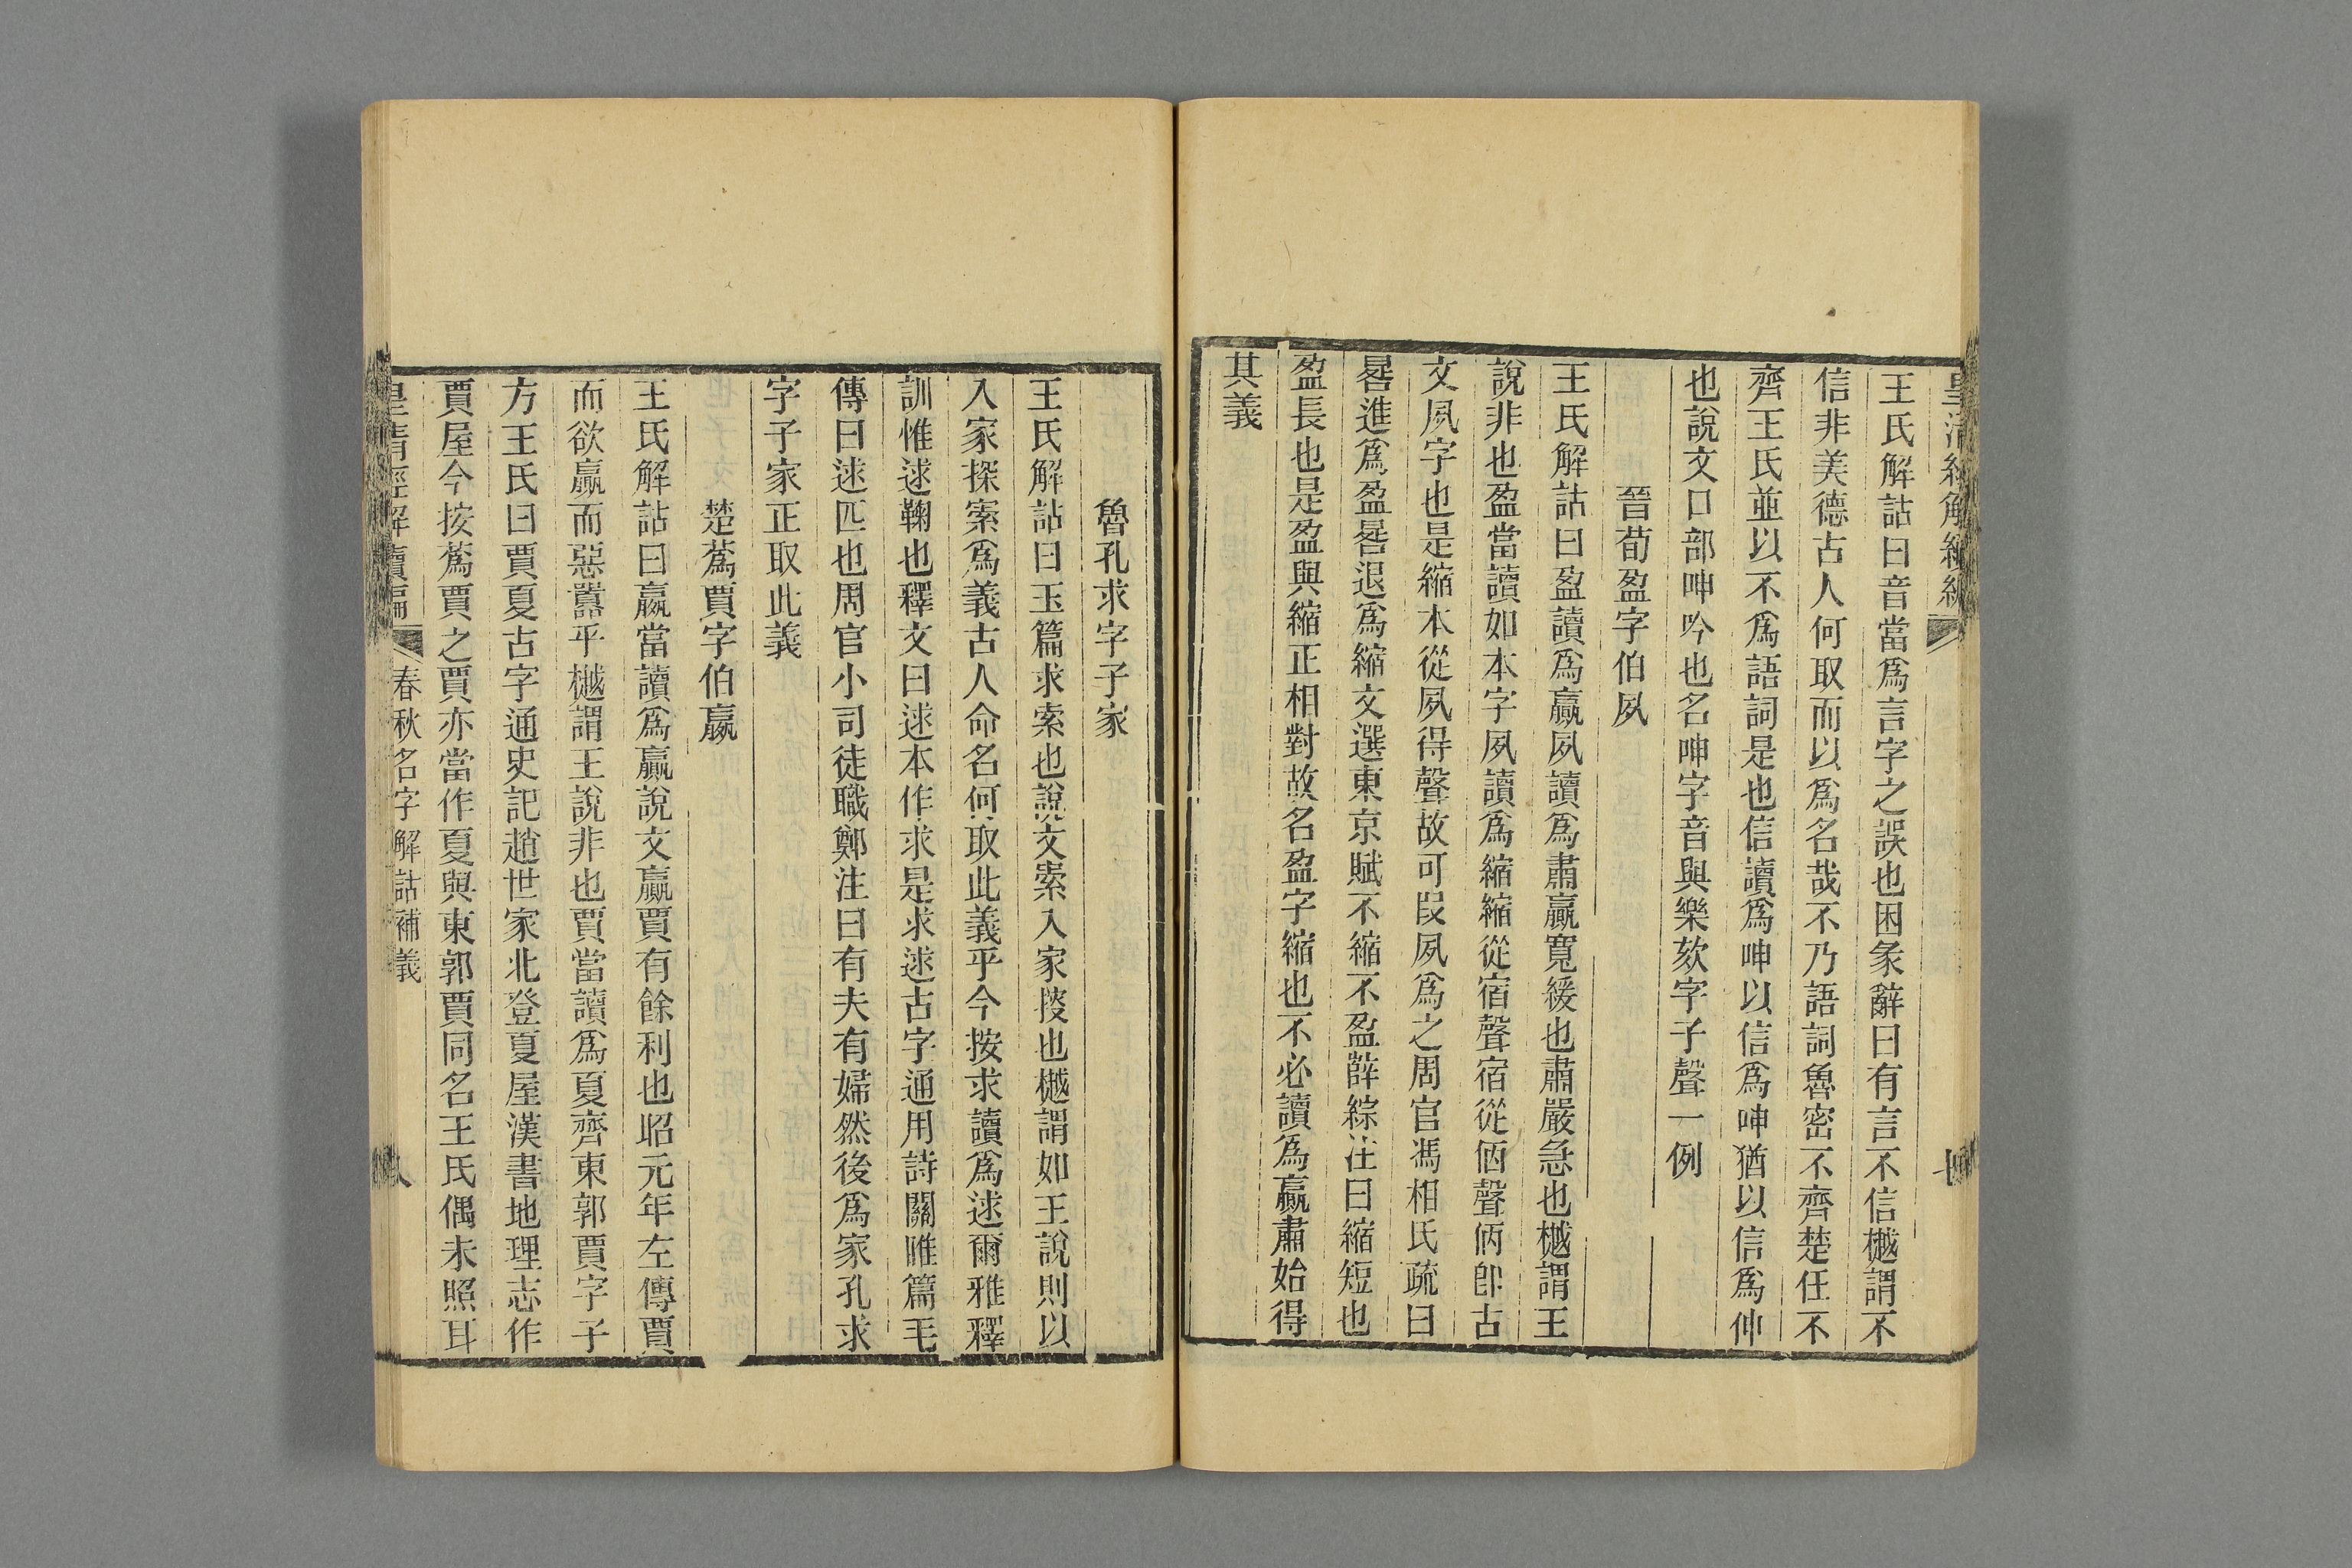 王氏解詁曰音當爲言字之誤也困彖辭曰有言不信樾謂不
信非美德古人何取而以爲名哉不乃語詞魯密不齊楚任不
齊王氏並以不爲語詞是也信讀爲呻以信爲呻猶以信爲伸
也說文口部呻吟也名呻字音與樂欬字子聲一例
晉荀盈字伯夙
王氏解詁曰盈讀爲贏夙讀爲肅贏寬緩也肅嚴急也樾謂王
說非也盈當讀如本字夙讀爲縮縮從宿聲宿從㐁聲㐁卽古
文夙字也是縮本從夙得聲故可叚夙爲之周官馮相氏疏曰
晷進爲盈晷退爲縮文選東京賦不縮不盈薛綜注曰縮短也
盈長也是盈與縮正相對故名盈字縮也不必讀爲贏肅始得
其義
魯孔求字子家
王氏解詁曰玉篇求索也說文索入家搜也樾謂如王說則以
入家探索爲義古人命名何取此義乎今按求讀爲逑爾雅釋
訓惟逑鞠也釋文曰逑本作求是求逑古字通用詩關雎篇毛
傳曰逑匹也周官小司徒職鄭注曰有夫有婦然後爲家孔求
字子家正取此義
楚蔿賈字伯嬴
王氏解詁曰嬴當讀爲贏說文贏賈有餘利也昭元年左傳賈
而欲贏而惡囂乎樾謂王說非也賈當讀爲夏齊東郭賈字子
方王氏曰賈夏古字通史記趙世家北登夏屋漢書地理志作
賈屋今按蔿賈之賈亦當作夏與東郭賈同名王氏偶未照耳
皇清經解續編 春秋名字解詁補義